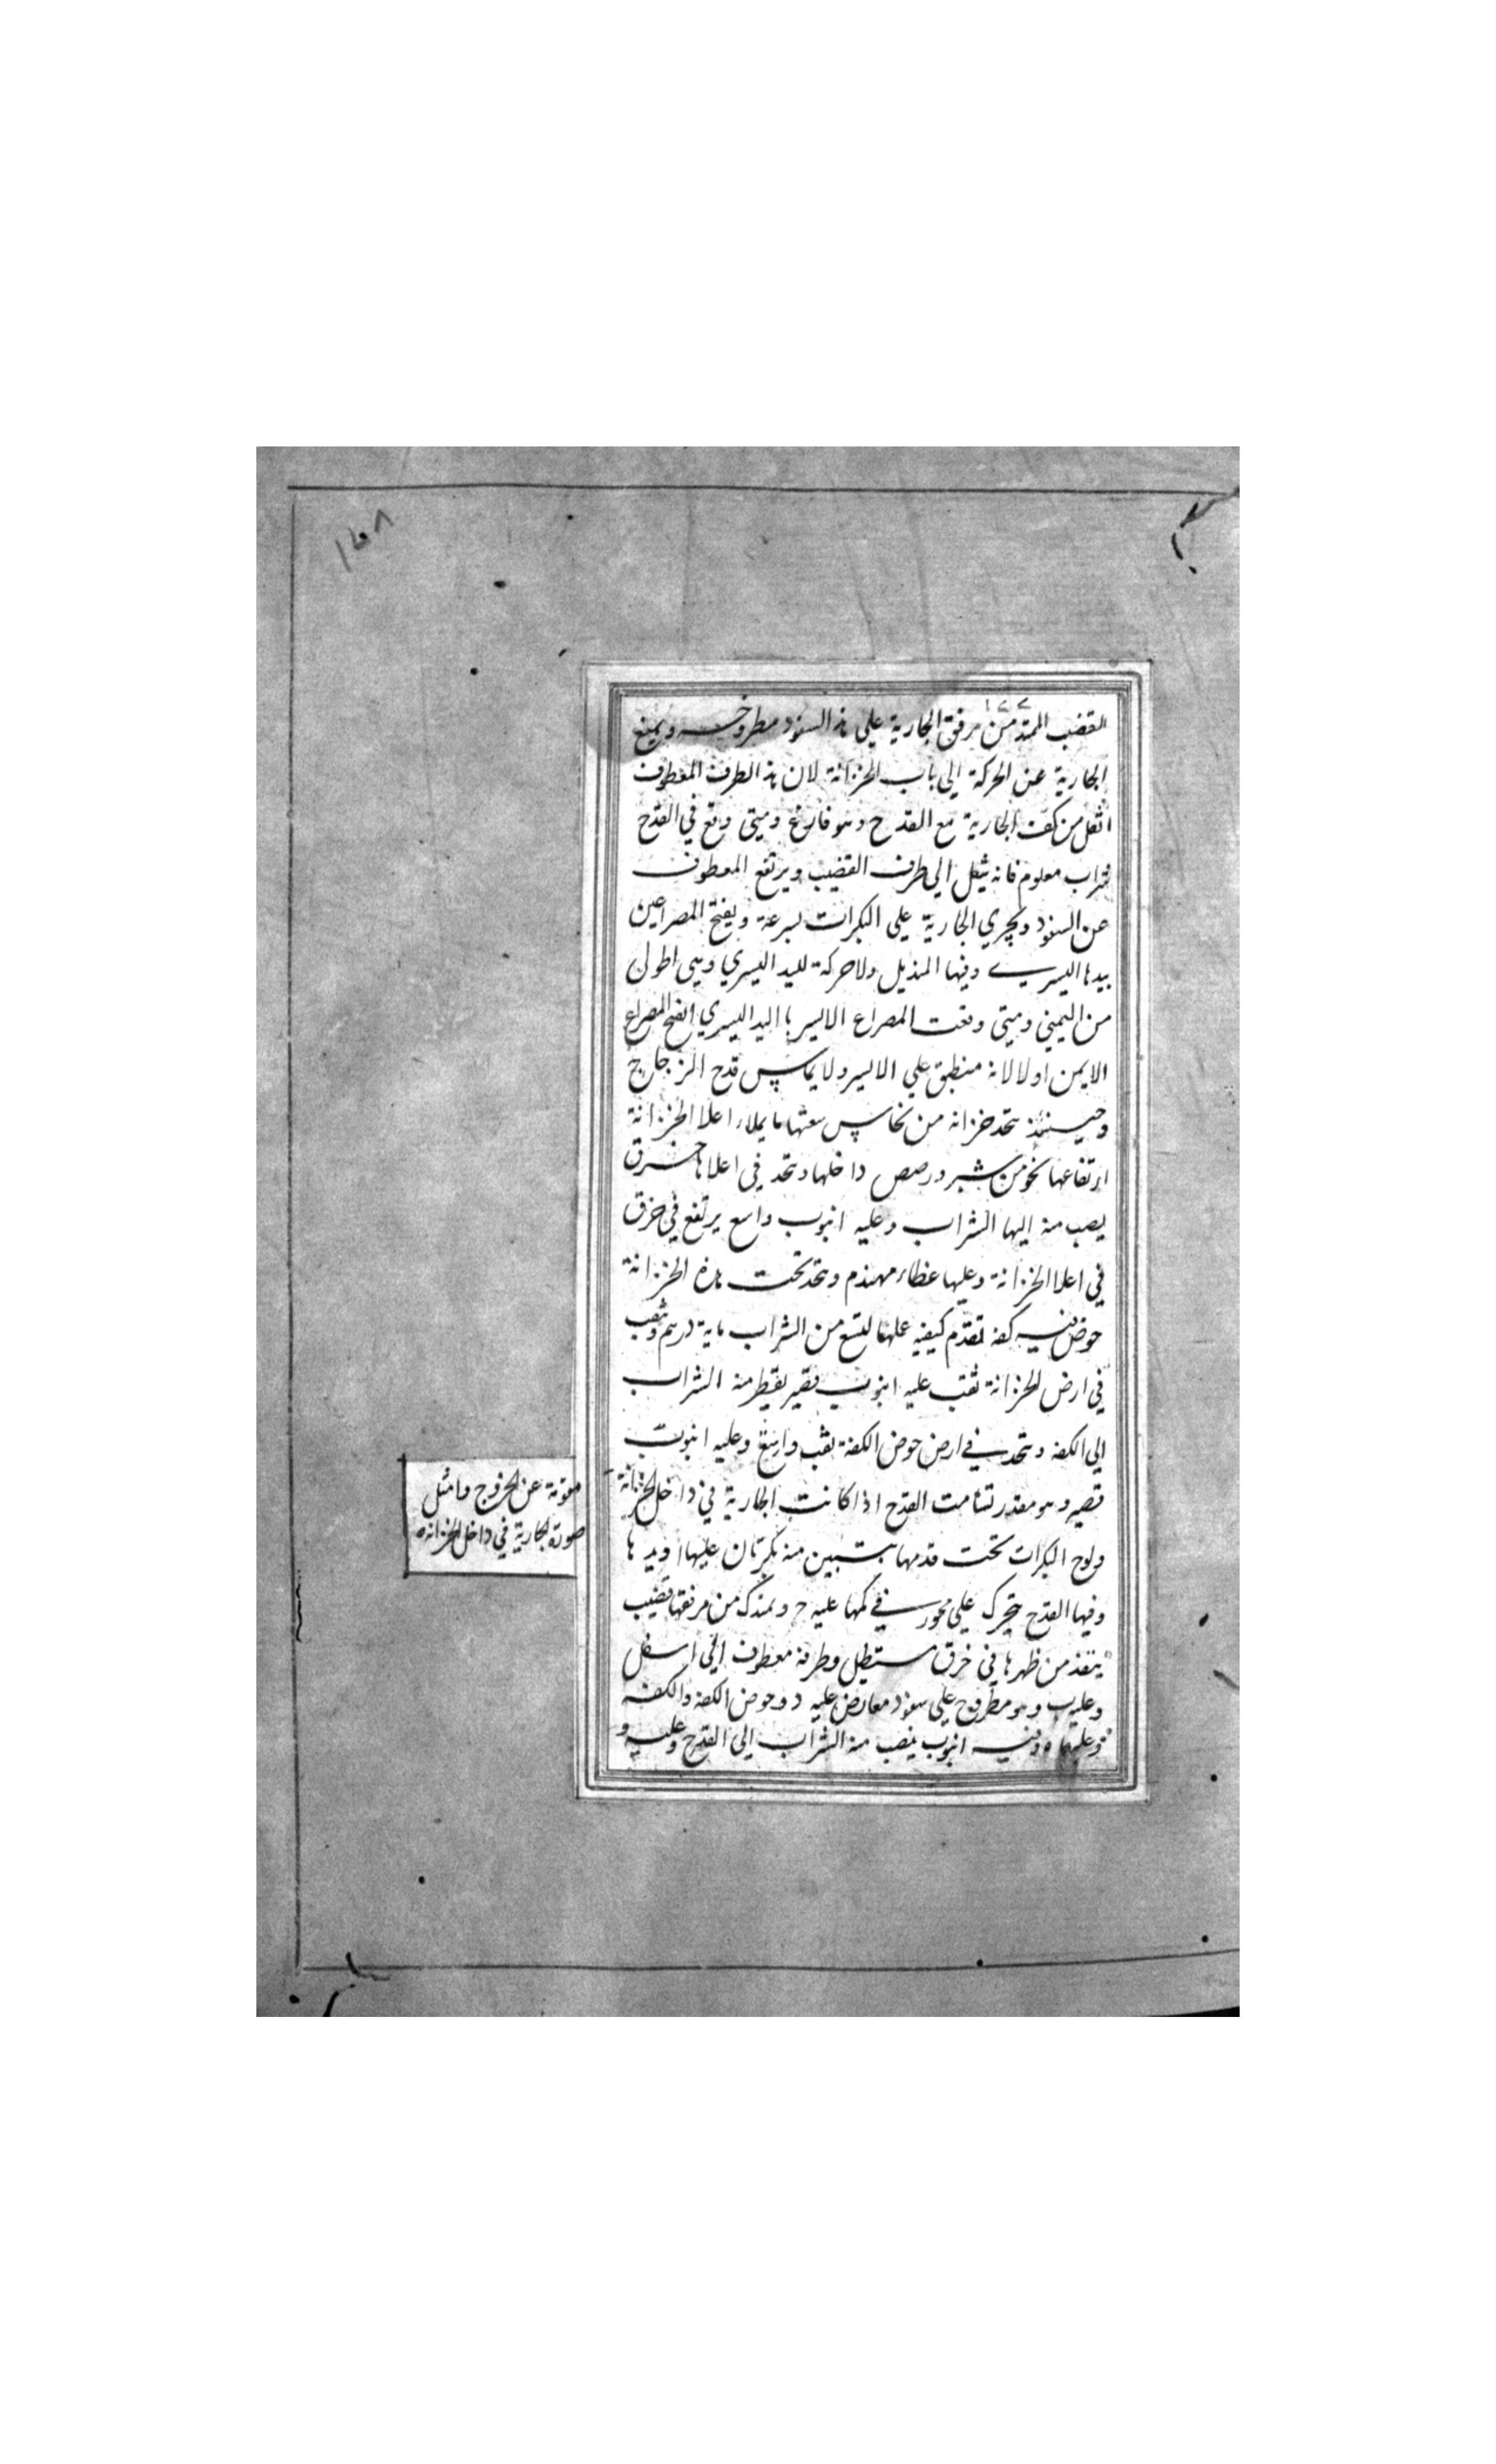 ١٤٨
١٤٧
القضيب الممتد من مرفق الجارية علي هذا السفود مطروحه ويمنع
الجارية عن الحركة الي باب الخزانة لان هذا الطرف المعطوف
اثقل من كف الجارية مع القدح وهو فارغ ومتي وقع في القدح
شراب معلوم فانه يثقل الي طرف القضيب ويرتفع المعطوف
عن السفود وتجري الجارية علي البكرات بسرعة ويفتح المصراعين
بيدها اليسري وفيها المنديل ولا حركة لليد اليسري وهي اطول
من اليمني ومتي دفعت المصراع الايسر باليد اليسري انفتح المصراع
الايمن اولا لانه منطبق علي الايسر ولا يماس قدح الزجاج
وحينئذ يتخذ خزانه من نحاس سعتها ما يملاء اعلا الخزانة
ارتفاعها نحو من شبر ورصص داخلها ويتخذ في اعلاها خرق
يصب منه اليها الشراب وعليه انبوب واسع يرتفع في خرق
في اعلا الخزانة وعليها غطاء مهندم ويتخذ تحت هذه الخزانة
حوض فيه كفه تقدم كيفيه عملها لتسع من الشراب ماية درهم وثقب
في ارض الخزانة ثقب عليه انبوب قصير يقطر منه الشراب
الي الكفه ويتخذ في ارض حوض الكفة ثقب واسع وعليه انبوب
قصير وهو مقدر تسامت القدح اذا كانت الجارية في داخل الخزانة
ولوح البكرات تحت قدمها يتبين منه بكرتان عليها ا ويدها
وفيها القدح يتحرك علي محور في كمها عليه ح ويمتد من مرفقها قضيب
ينفذ من ظهرها في خرق مستطيل وطرفه معطوف الي اسفل
وعليه ب وهو مطروح علي سفود معارض عليه د وحوض الكفه والكفه
فيه وعليها ه وفيه انبوب ينصب منه الشراب الي القدح وعليه و
معوقة عن الخروج وامثل
صورة الجارية في داخل الخزانه